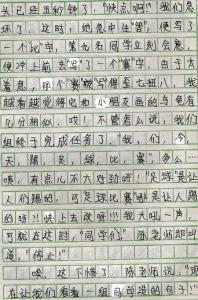 头已经五秒钟了，“快点啊！”我们急
坏了。这时，她急中生智，便写了
一个比字，第九名同学立刻会意，
便冲上前去写了一个“赛”字，由于太
着急，那个“赛”被写得歪七扭八，我
越看越觉得它和小朋友画的乌龟有
几分相似。哎！不管怎么说，我们
组终于完成任务了，“我，们，今，
天，踢，足，球，比，赛”。多么
唤，有点儿不大对劲呀！“足球”是让
人们踢的，可“足球比赛”哪是让人踢
的呀?!快上去改呀!!!我大吼一声，
可就在这时，“同学们”，陈老师却叫
道，“停止！”
唉，这下惨了，陈老师说：“现
在让我们看看一组同学造的句子！”